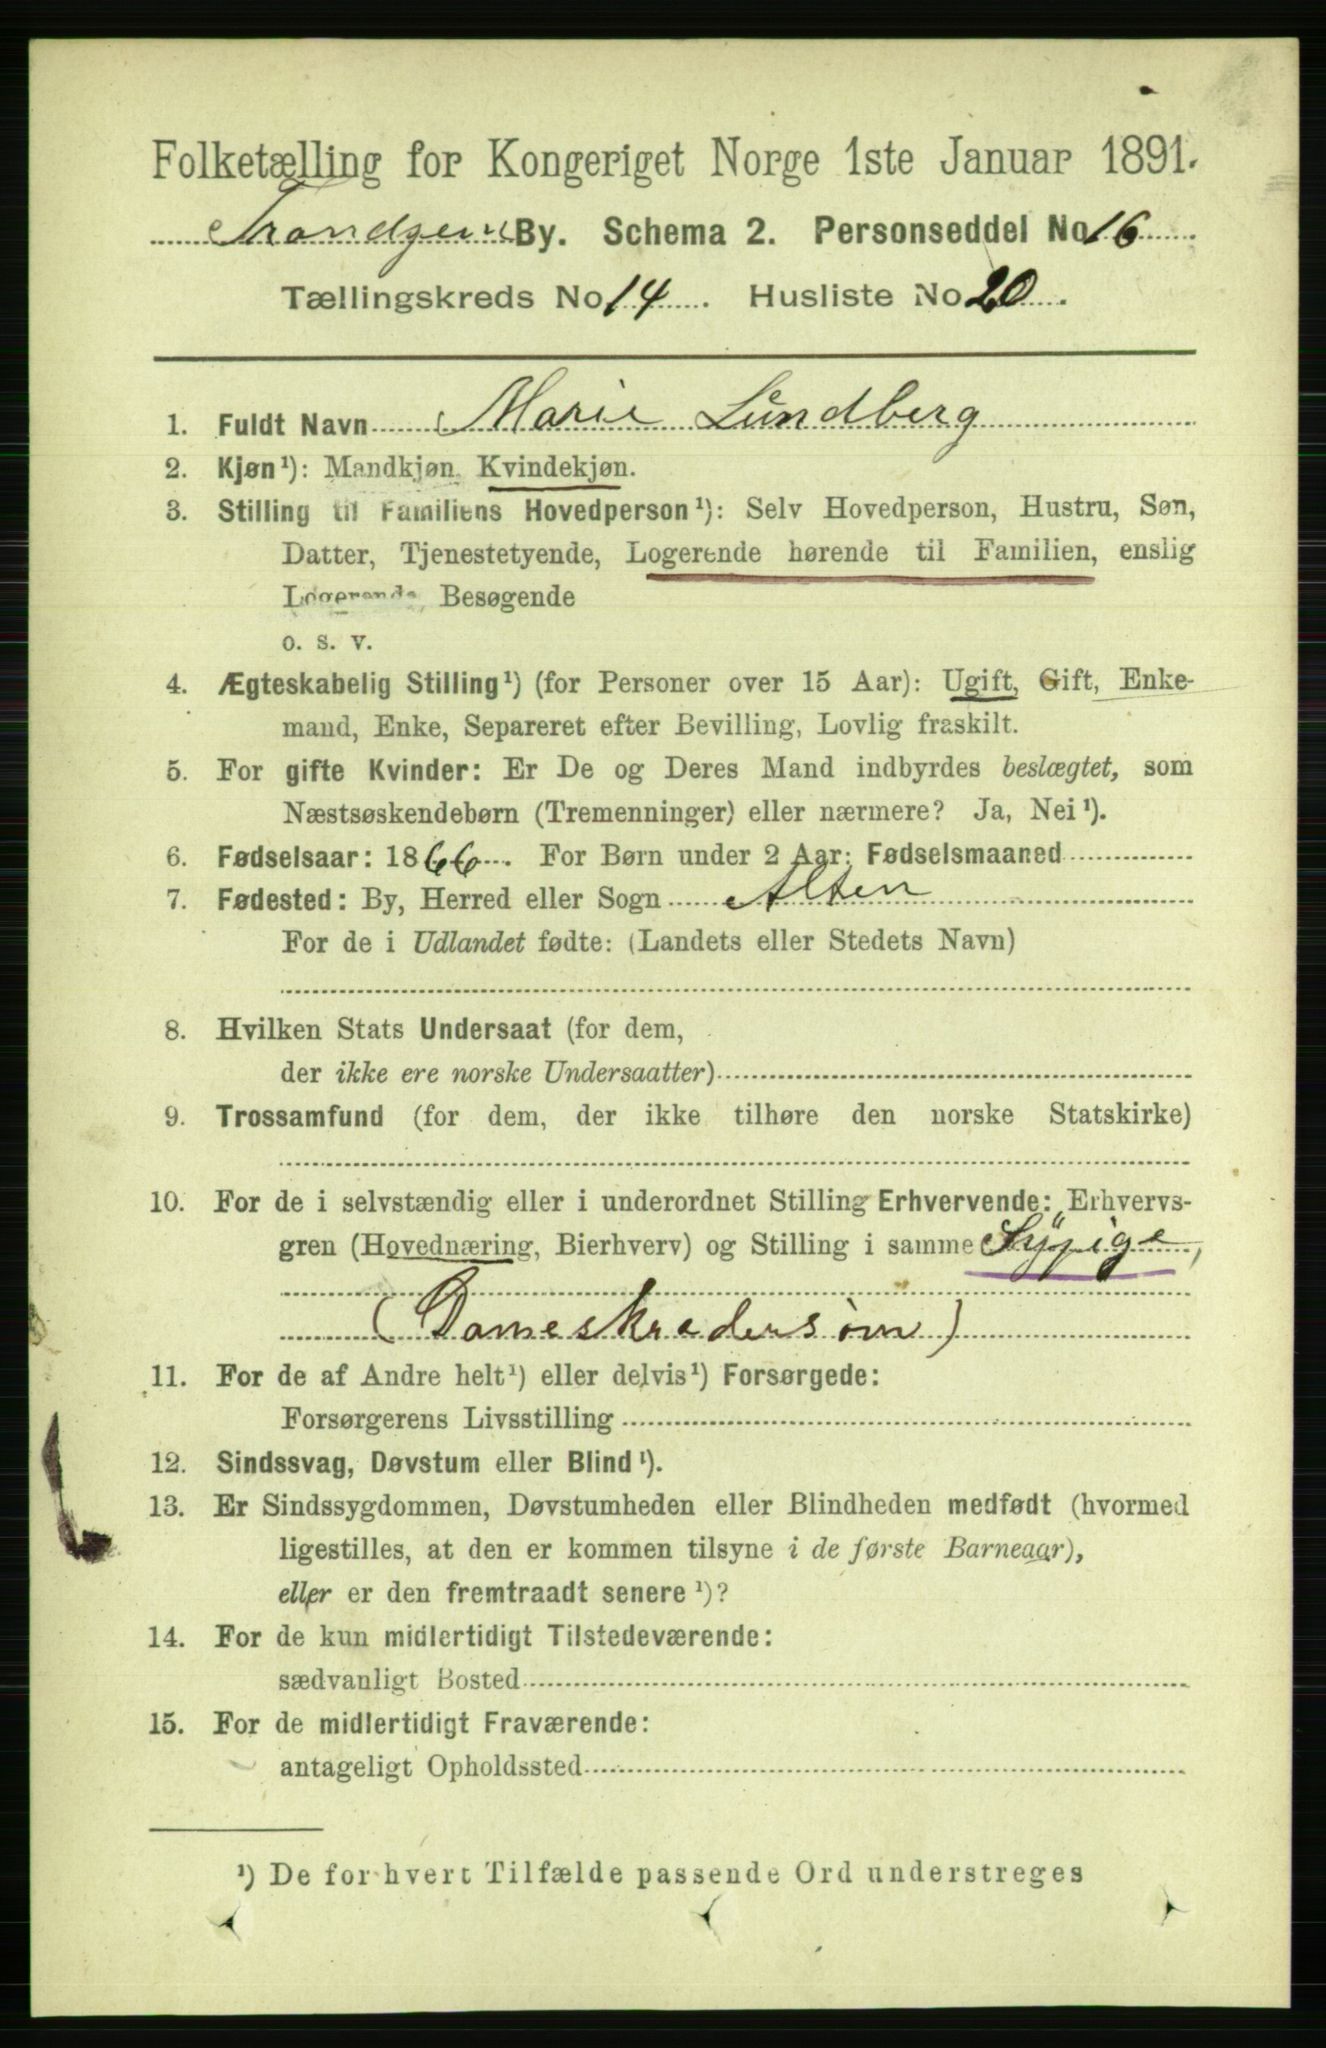 Folketælling for Kongeriget Norge 1ste Januar 1891.
Trondhjems By. Schema 2. Personseddel No 16
Tællingskreds No 14. Husliste No 20.
1. Fuldt Navn Marie Lundberg
2. Kjøn¹): Mandkjøn, Kvindekjøn.
3. Stilling til Familiens Hovedperson¹): Selv Hovedperson, Hustru, Søn,
Datter, Tjenestetyende, Logerende hørende til Familien, enslig
Logerende, Besøgende
o. s. v.
4. Ægteskabelig Stilling¹) (for Personer over 15 Aar): Ugift, Gift, Enke-
mand, Enke, Separeret efter Bevilling, Lovlig fraskilt.
5. For gifte Kvinder: Er De og Deres Mand indbyrdes beslægtet, som
Næstsøskendebørn (Tremenninger) eller nærmere? Ja, Nei¹).
6. Fødselsaar: 1866. For Børn under 2 Aar: Fødselsmaaned
7. Fødested: By, Herred eller Sogn Alten
For de i Udlandet fødte: (Landets eller Stedets Navn)
8. Hvilken Stats Undersaat (for dem,
der ikke ere norske Undersaatter)
9. Trossamfund (for dem, der ikke tilhøre den norske Statskirke)
10. For de i selvstændig eller i underordnet Stilling Erhvervende: Erhvervs-
gren (Hovednæring, Bierhverv) og Stilling i samme Sypige,
(Dameskrædersøm)
11. For de af Andre helt¹) eller delvis¹) Forsørgede:
Forsørgerens Livsstilling
12. Sindssvag, Døvstum eller Blind¹).
13. Er Sindssygdommen, Døvstumheden eller Blindheden medfødt (hvormed
ligestilles, at den er kommen tilsyne i de første Barneaar),
eller er den fremtraadt senere¹)?
14. For de kun midlertidigt Tilstedeværende:
sædvanligt Bosted
15. For de midlertidigt Fraværende:
antageligt Opholdssted
¹) De for hvert Tilfælde passende Ord understreges